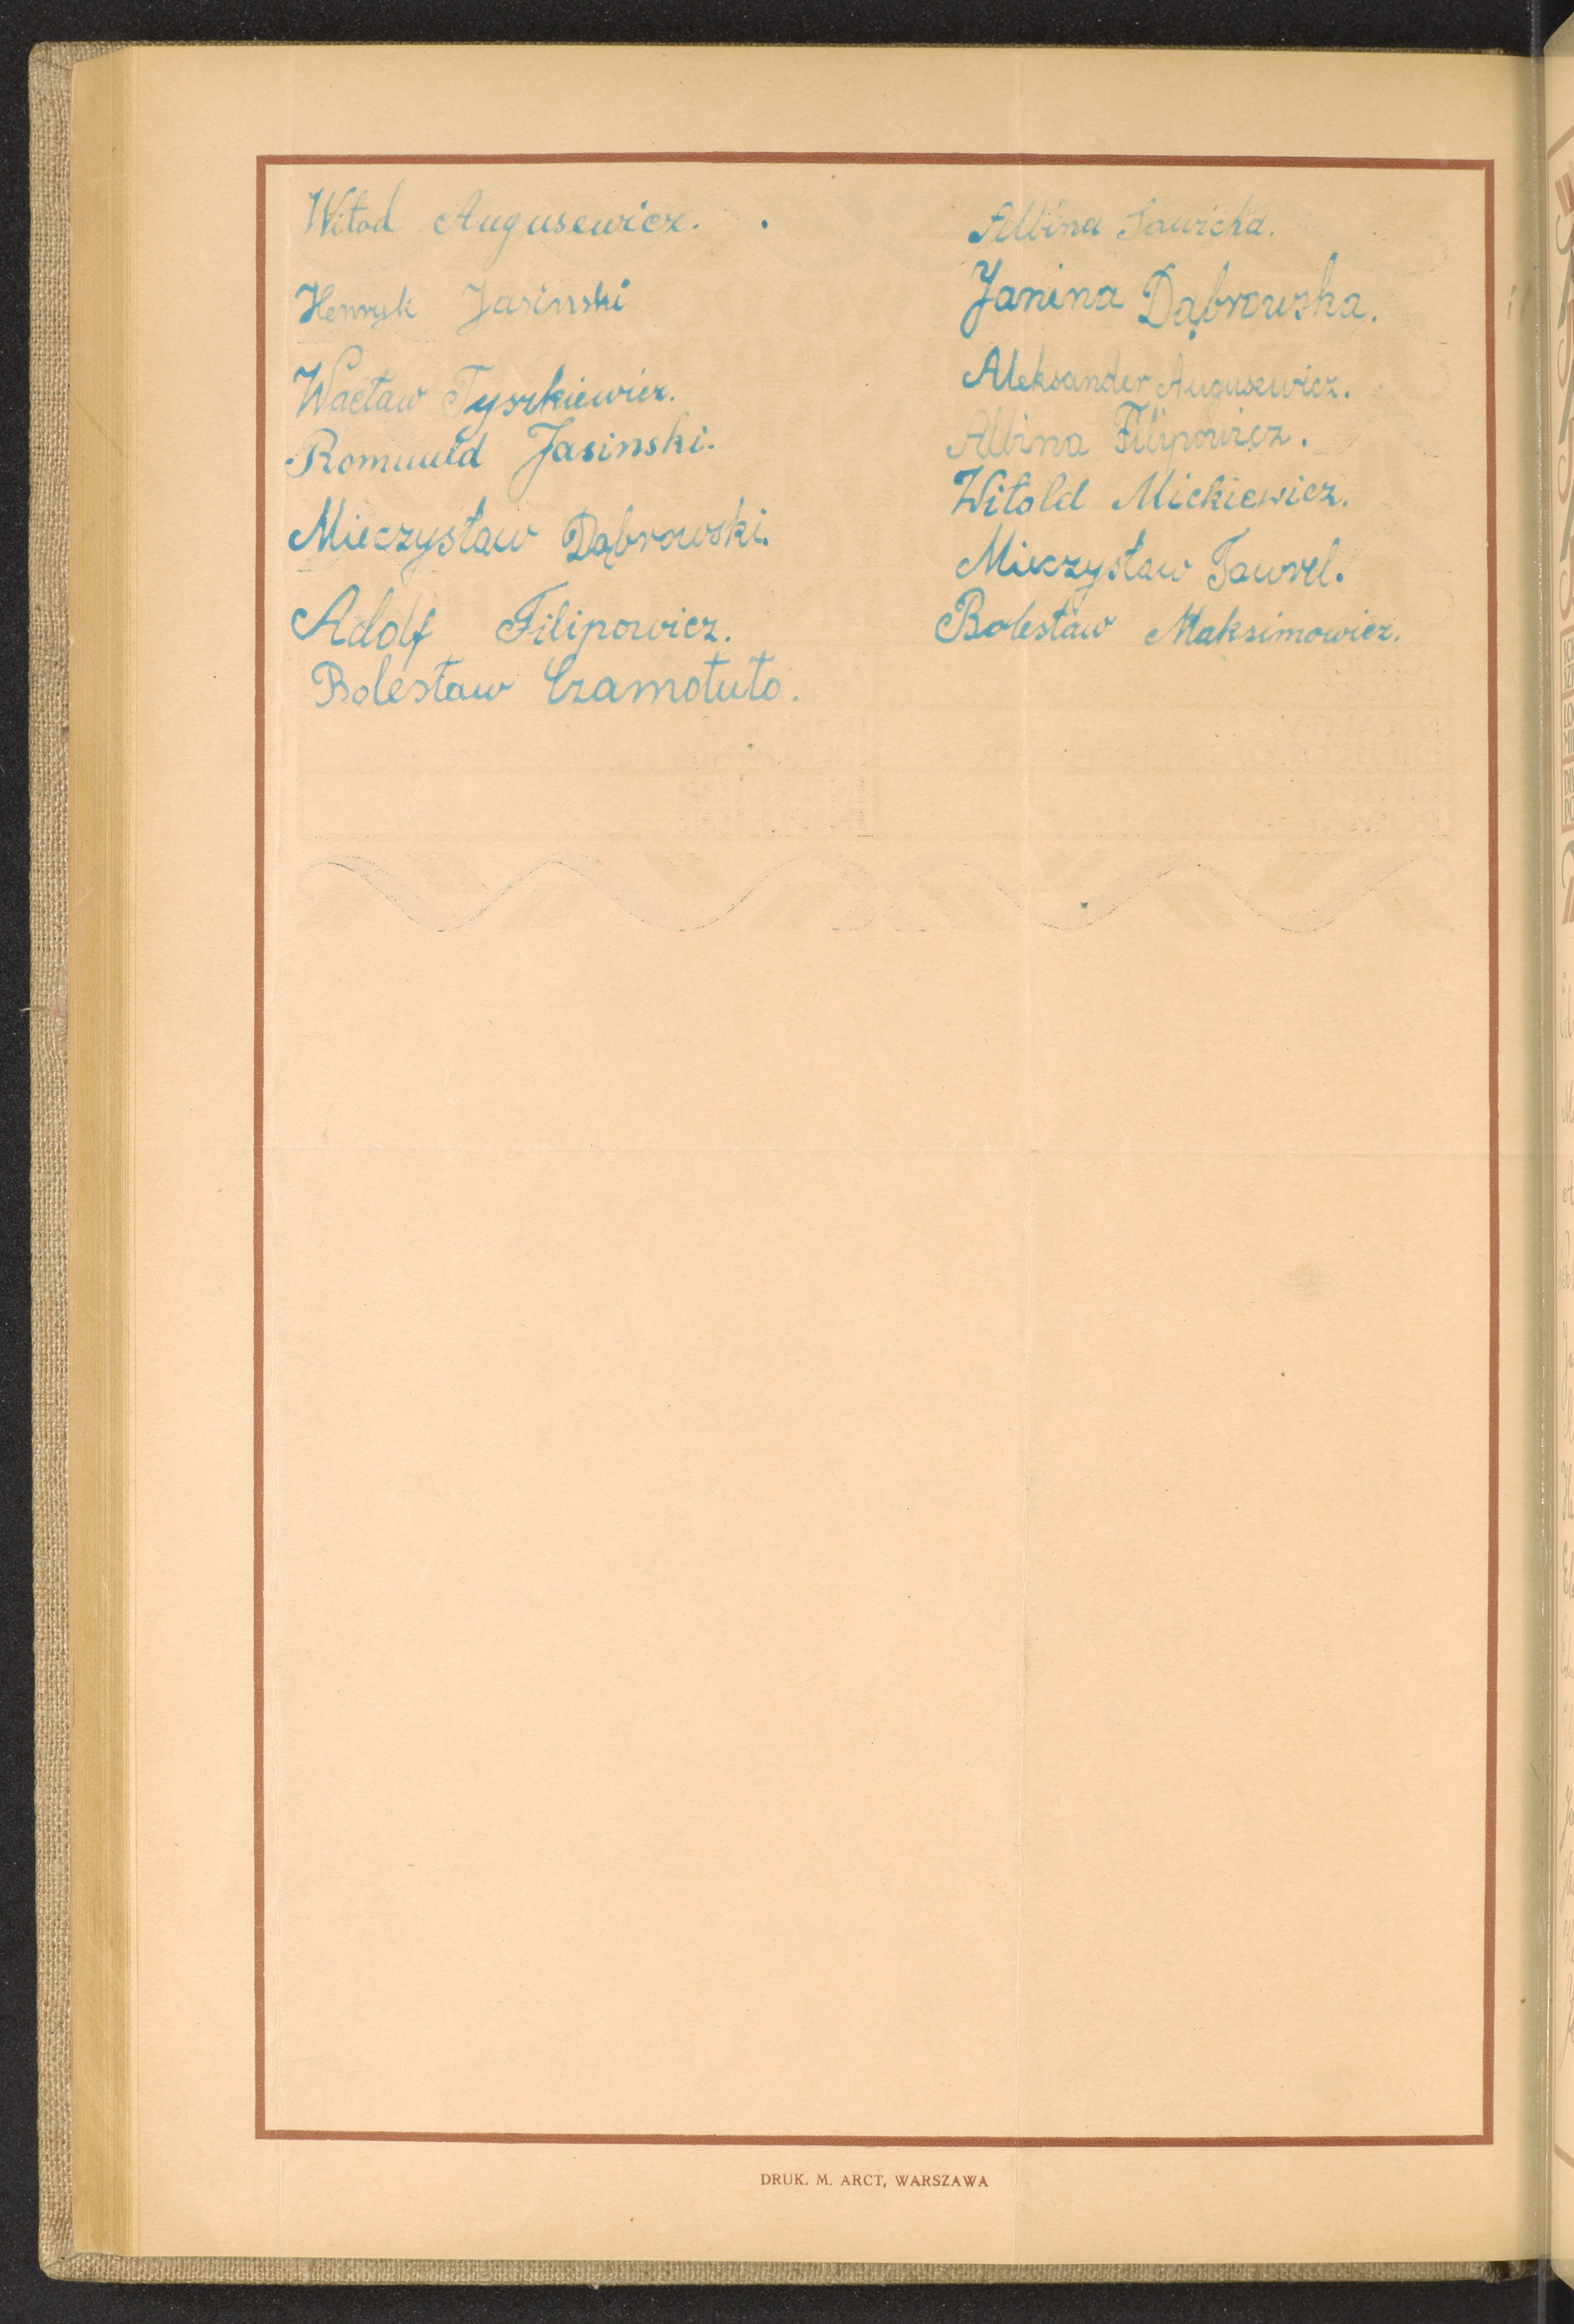 Witod Augusewicz.
Henryk Jasinski
Wacław Tyszkiewicz.
Romuald Jasinski.
Mieczysław Dąbrowski.
Adolf Filipowicz.
Bolesław Czamołuto.
Albina Sawicka.
Janina Dąbrowska.
Aleksander Augusewicz.
Albina Filipowicz.
Witold Mickiewicz.
Mieczysław Tawrel.
Bolesław Maksimowicz.
DRUK. M. ARCT, WARSZAWA